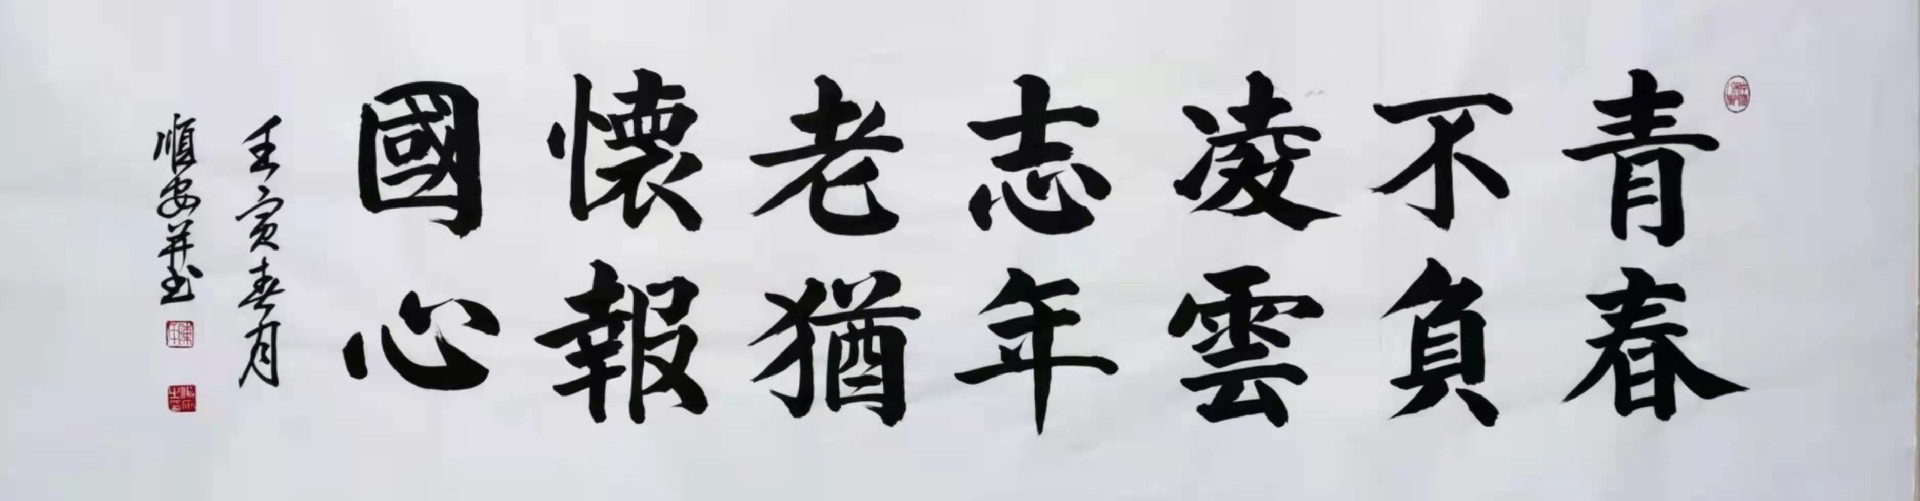 青春
不負
凌雲
志年
老猶
懷報
國心
壬寅春月
順安并书